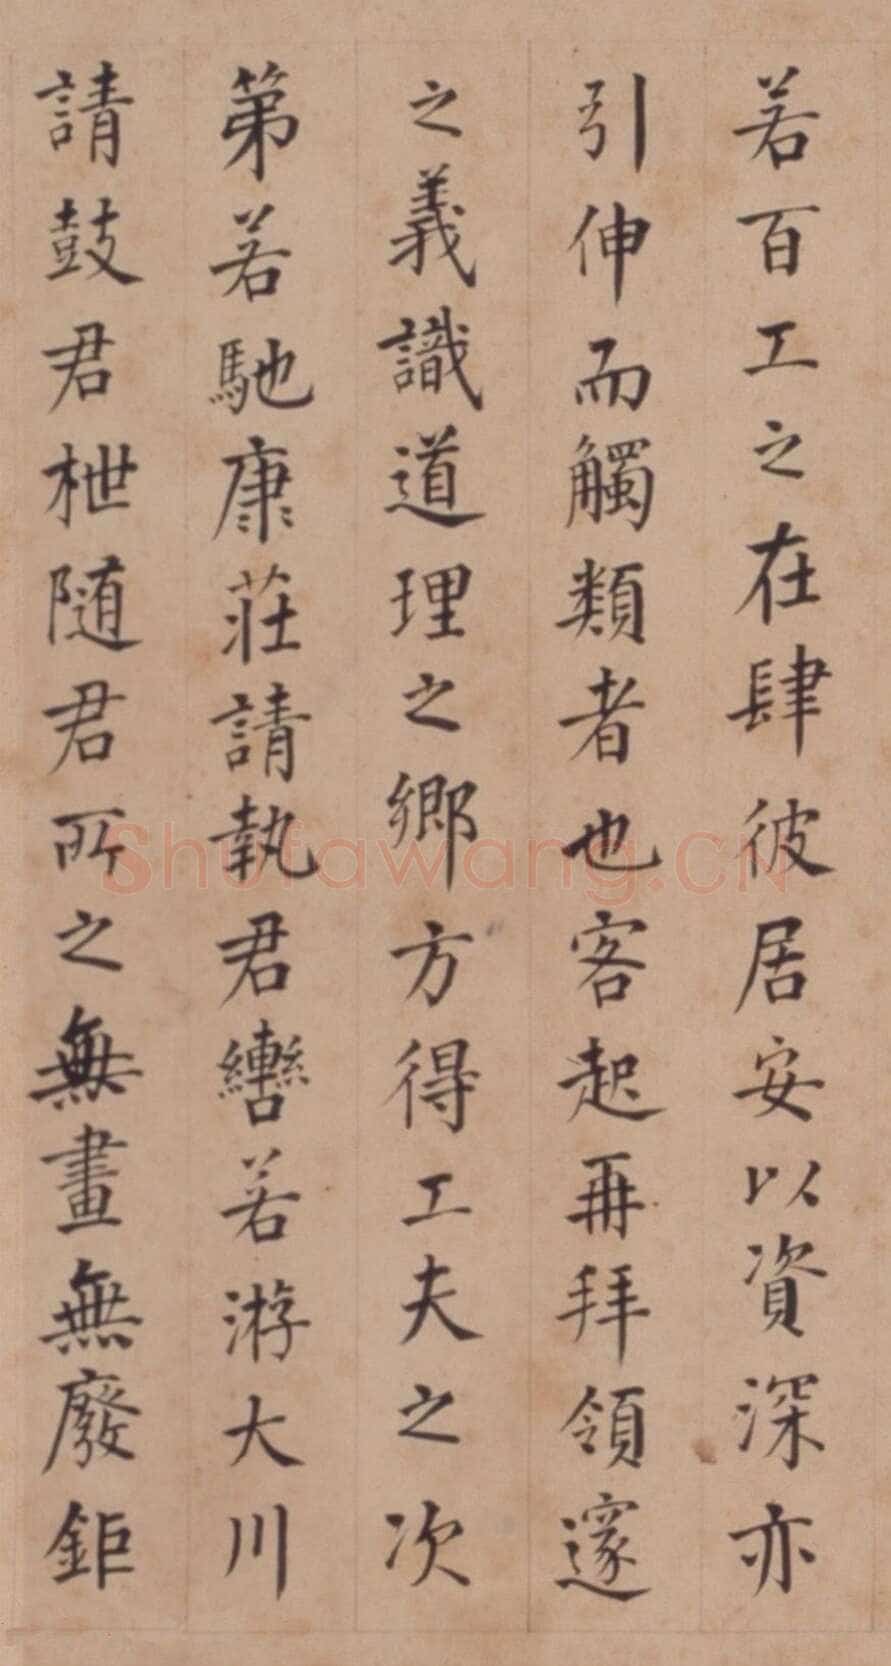 若百工之在肆彼居安以資深亦
引伸而觸類者也客起再拜領邃
之義識道理之鄉方得工夫之次
第若馳康莊請執君轡若游大川
請鼓君枻随君所之無畫無廢鉅
Shufawang.CN